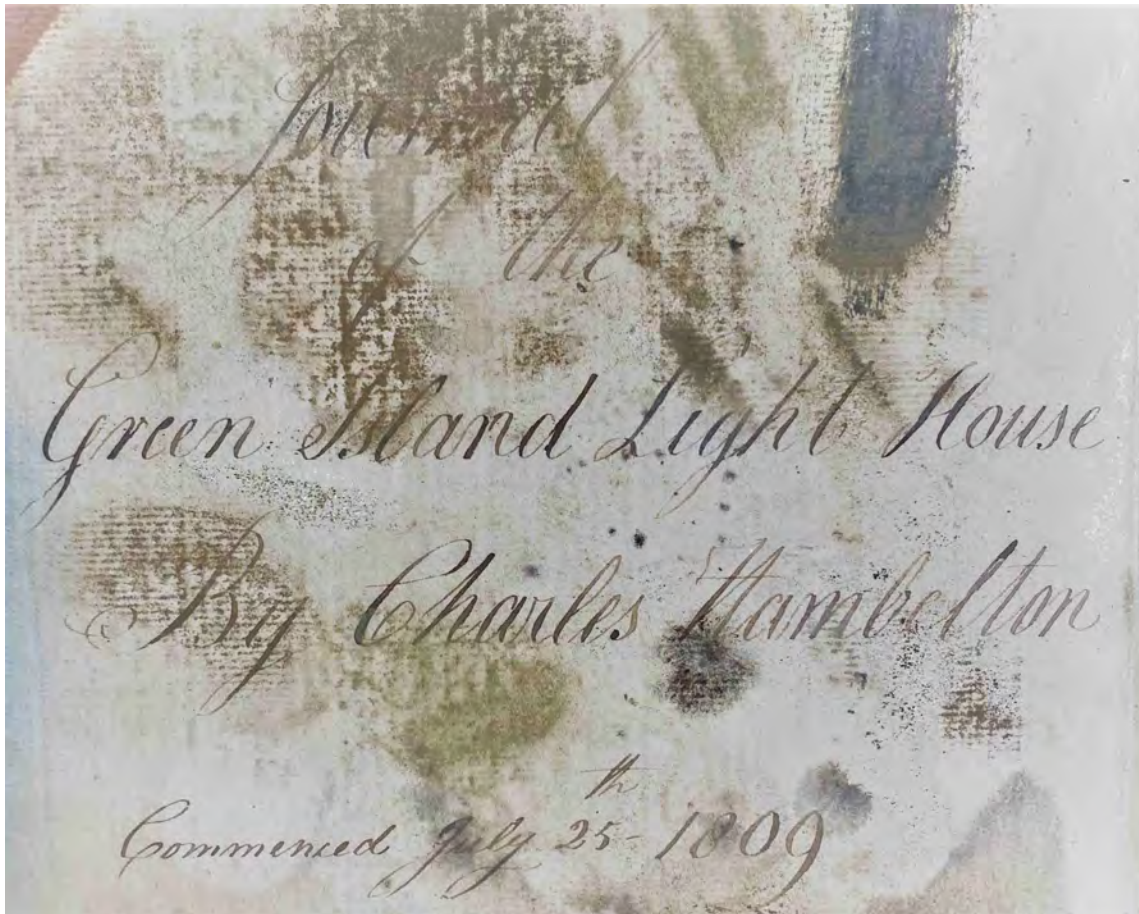 Journal
of the
Green Island Light House
By Charles Hambelton
Commenced July 25th 1809